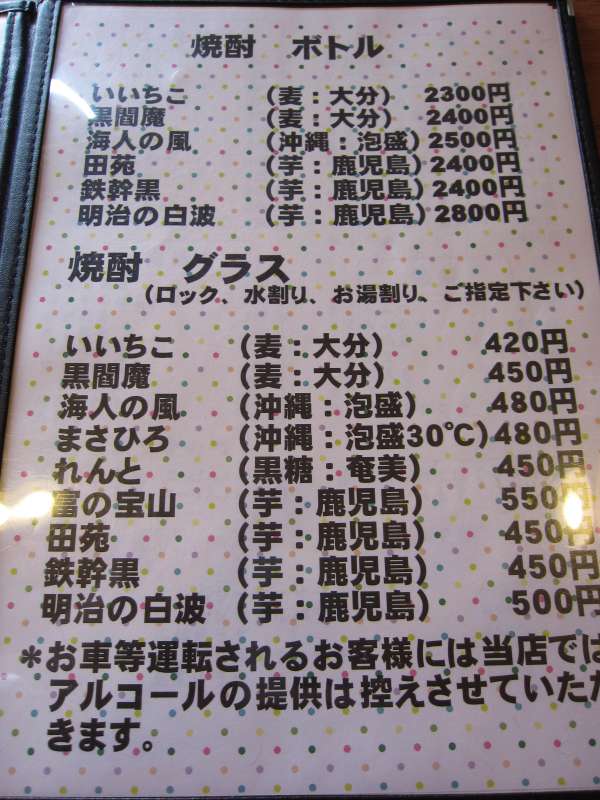 焼酎 ボトル
いいちこ (麦:大分) 2300円
黒閻魔 (麦:大分) 2400円
海人の風 (沖縄:泡盛) 2500円
田苑 (芋:鹿児島) 2400円
鉄幹黒 (芋:鹿児島) 2400円
明治の白波 (芋:鹿児島) 2800円
焼酎 グラス
(ロック、水割り、お湯割り、ご指定下さい)
いいちこ (麦:大分) 420円
黒閻魔 (麦:大分) 450円
海人の風 (沖縄:泡盛) 480円
まさひろ (沖縄:泡盛30℃) 480円
れんと (黒糖:奄美) 450円
富の宝山 (芋:鹿児島) 550円
田苑 (芋:鹿児島) 450円
鉄幹黒 (芋:鹿児島) 450円
明治の白波 (芋:鹿児島) 500円
*お車等運転されるお客様には当店では
アルコールの提供は控えさせていただ
きます。